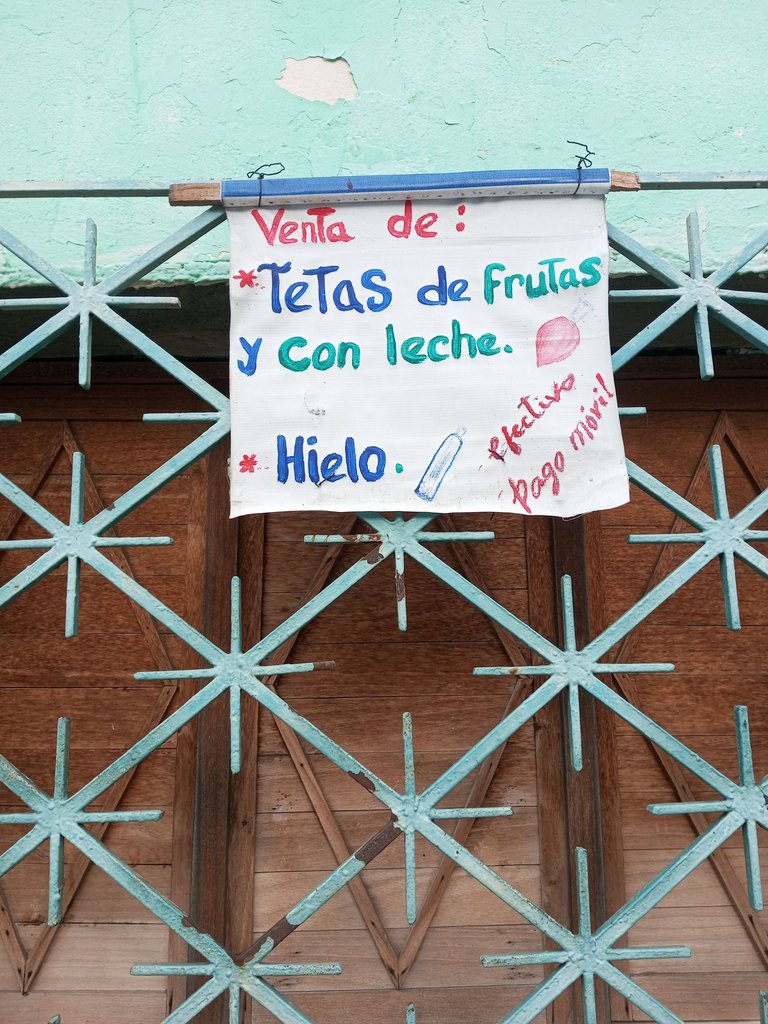 Venta de:
* Tetas de frutas
y con leche.
* Hielo.
Efectivo
pago móvil